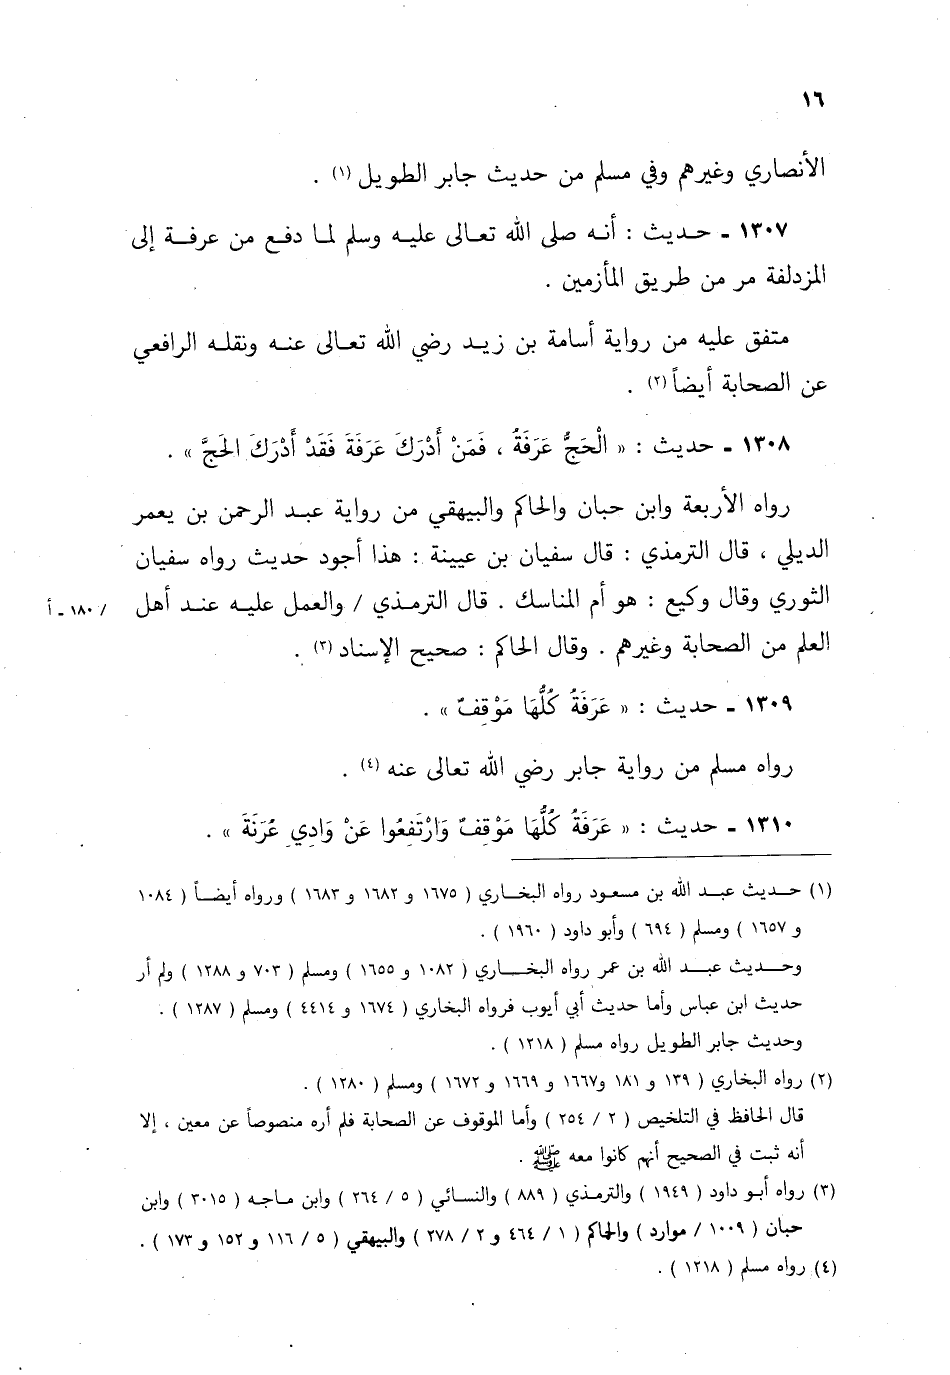 ١٦
الأنصاري وغيرهم وفي مسلم من حديث جابر الطويل (١) .
١٣٠٧ ـ حـديث : أنـه صلى الله تعـالى عليـه وسلم لمـا دفـع من عرفـة إلى
المزدلفة مر من طريق المأزمين .
متفق عليه من رواية أسامة بن زيـد رضي الله تعـالى عنـه ونقلـه الرافعي
عن الصحابة أيضاً (٢) .
١٣٠٨ ـ حديث : « الْحَجُّ عَرَفَةُ ، فَمَنْ أَدْرَكَ عَرَفَةَ فَقَدْ أَدْرَكَ الحَجَّ » .
رواه الأربعة وابن حبان والحاكم والبيهقي من رواية عبـد الرحمن بن يعمر
الديلي ، قال الترمذي : قال سفيان بن عيينة : هذا أجود حديث رواه سفيان
الثوري وقال وكيع : هو أم المناسك . قال الترمذي / والعمل عليـه عنـد أهل / ١٨٠ ـ أ
العلم من الصحابة وغيرهم . وقال الحاكم : صحيح الإسناد (٣) .
١٣٠٩ ـ حديث : « عَرَفَةُ كُلُّهَا مَوْقِفٌ » .
رواه مسلم من رواية جابر رضي الله تعالى عنه (٤) .
١٣١٠ ـ حديث : « عَرَفَةُ كُلُّهَا مَوْقِفٌ وَارْتَفِعُوا عَنْ وَادِي عُرَنَةَ » .
(١) حـديث عبـد الله بن مسعود رواه البخـاري ( ١٦٧٥ و ١٦٨٢ و ١٦٨٣ ) ورواه أيضـاً ( ١٠٨٤
و ١٦٥٧ ) ومسلم ( ٦٩٤ ) وأبو داود ( ١٩٦٠ ) .
وحـديث عبـد الله بن عمر رواه البخـاري ( ١٠٨٢ و ١٦٥٥ ) ومسلم ( ٧٠٣ و ١٢٨٨ ) ولم أر
حديث ابن عباس وأما حديث أبي أيوب فرواه البخاري ( ١٦٧٤ و ٤٤١٤ ) ومسلم ( ١٢٨٧ ) .
وحديث جابر الطويل رواه مسلم ( ١٢١٨ ) .
(٢) رواه البخاري ( ١٣٩ و ١٨١ و١٦٦٧ و ١٦٦٩ و ١٦٧٢ ) ومسلم ( ١٢٨٠ ) .
قال الحافظ في التلخيص ( ٢ / ٢٥٤ ) وأما الموقوف عن الصحابة فلم أره منصوصاً عن معين ، إلا
أنه ثبت في الصحيح أنهم كانوا معه ﷺ .
(٣) رواه أبـو داود ( ١٩٤٩ ) والترمذي ( ٨٨٩ ) والنسائي ( ٥ / ٢٦٤ ) وابن مـاجـه ( ٣٠١٥ ) وابن
حبان ( ١٠٠٩ / موارد ) والحاكم ( ١ / ٤٦٤ و ٢ / ٢٧٨ ) والبيهقي ( ٥ / ١١٦ و ١٥٢ و ١٧٣ ) .
(٤) رواه مسلم ( ١٢١٨ ) .